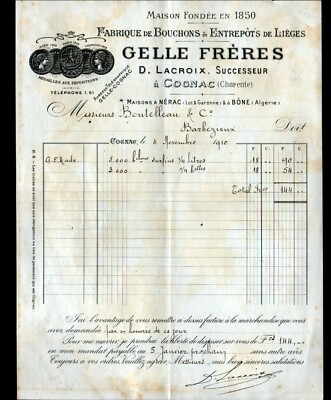 MAISON FONDÉE EN 1850
FABRIQUE DE BOUCHONS & ENTREPÔTS DE LIÈGES
GELLE FRÈRES
D. LACROIX, SUCCESSEUR
à COGNAC (Charente)
MÉDAILLES AUX EXPOSITIONS
TÉLÉPHONE 1.51
GELLE-COGNAC
MAISONS À NÉRAC (Lot & Garonne) & à BÔNE (Algérie)
Messieurs Boutelleau & Cº
Barbezieux Doit
COGNAC, le 4 Novembre 1910
G.E. Rade. 5.000 surfins 4/4 litres 18 90
3.000 4/4 18 54
Total frs 144
J'ai l'avantage de vous remettre ci-dessus facture à la marchandise que vous
avez demandée par honorée de ce jour
Pour me couvrir, je prendrai la liberté de disposer sur vous de Frs 144
en mon mandat payable au 5 Janvier prochain sans autre avis
Toujours à vos ordres, veuillez agréer, Messieurs, mes bien sincères salutations
D. Lacroix